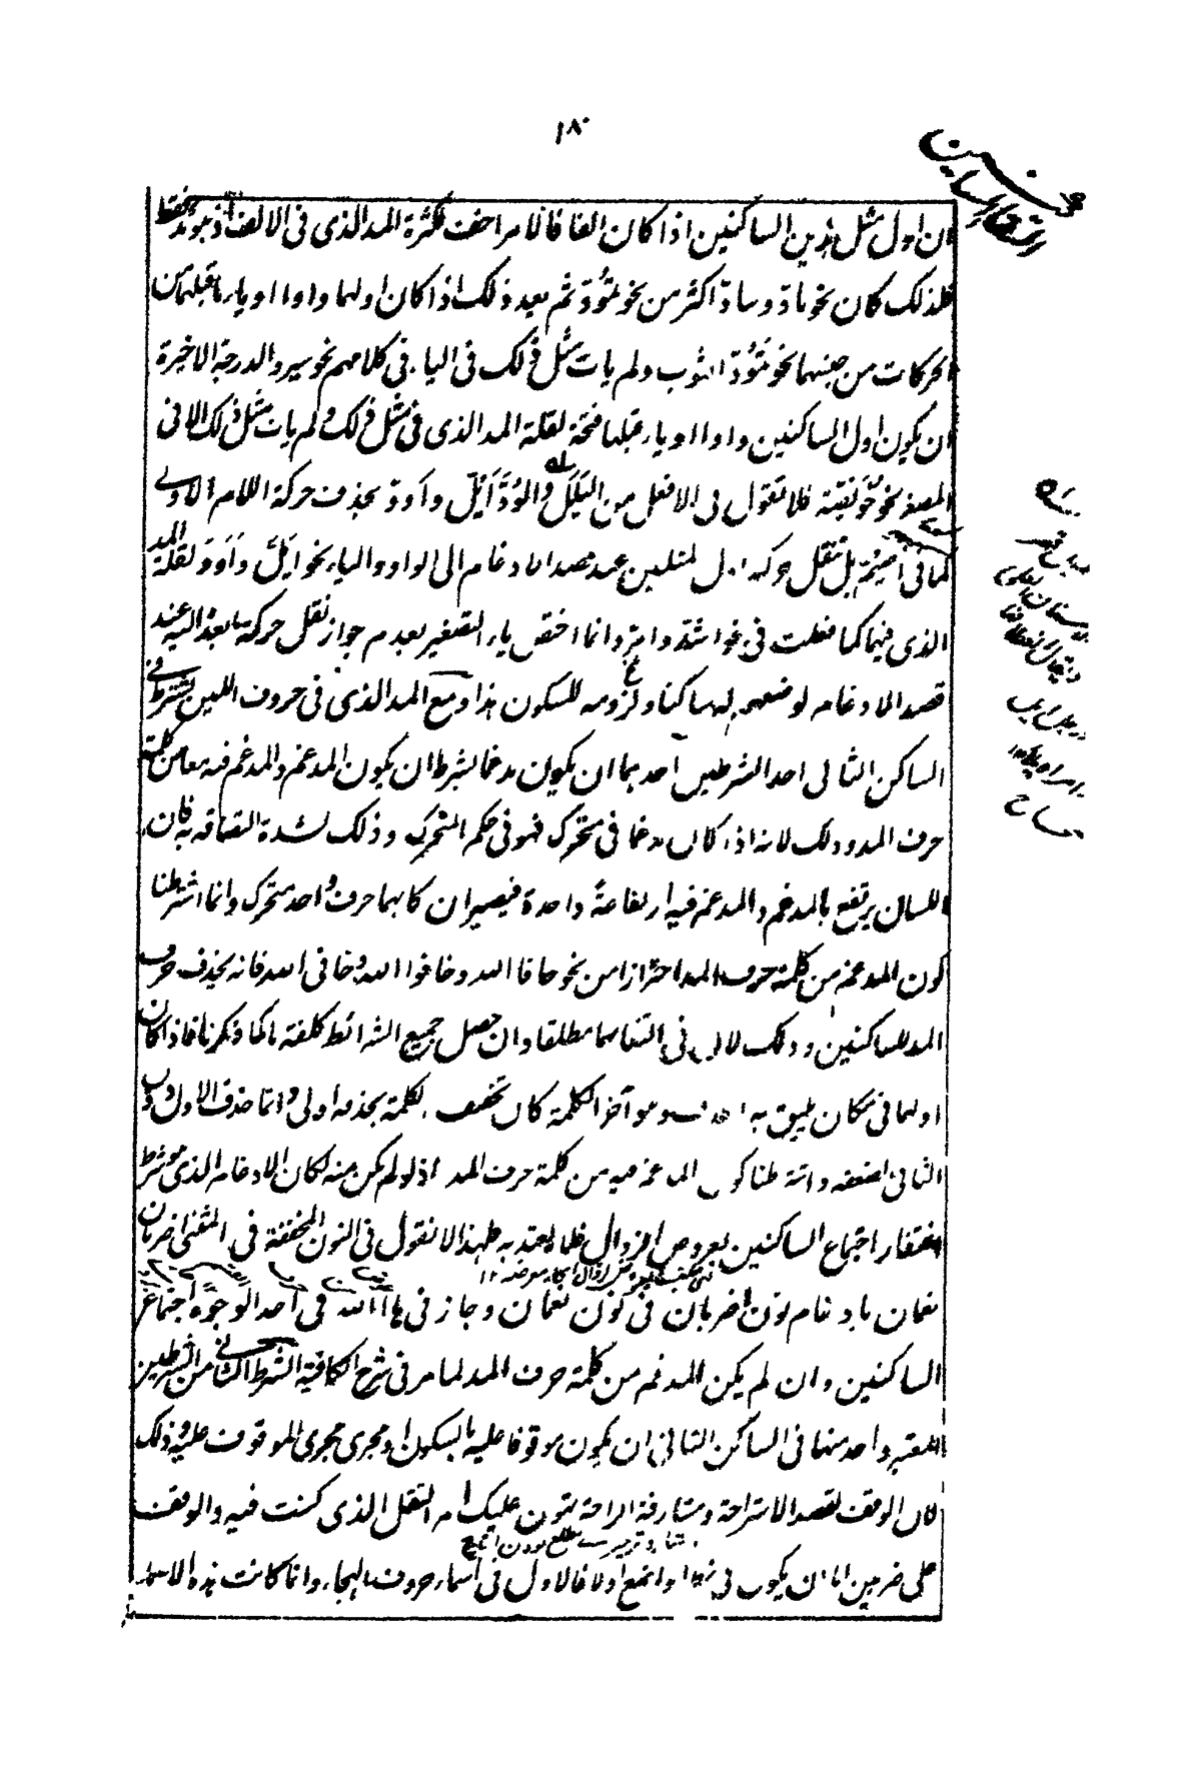 ١٨٠
التقاء الساكنين
ان اول مثل هذين الساكنين اذا كان الفا فالامر اخف لكثرة المد الذى فى الالف اذ هو مد فقط
فلذلك كان نحو مادّ وسادّ اكثر من نحو تمودّ ثم بعد ذلك اذا كان اولهما واوا او ياء ما قبلهما من
الحركات من جنسهما نحو تمودّ الثوب ولم يأت مثل ذلك فى الياء فى كلامهم نحو سير والدرجة الاخيرة
ان يكون اول الساكنين واوا او ياء قبلها فتحة لقلة المد الذى فى مثل ذلك ولم يأت مثل ذلك الا فى
المصغر نحو خويصّة فلا تقول فى الافعل من اليلل والودّ ايلّ واودّ بحذف حركة اللام الاولى
كما فى اصيمّ بل تنقل حركة اول المثلين عند قصد الادغام الى الواو والياء نحو ايلّ واودّ لقلة المد
الذى فيهما كما فعلت فى نحو اشدّ وامرّ وانما اختص ياء التصغير بعدم جواز نقل حركة ما بعدها اليه عند
قصد الادغام لوضعهم لها ساكنا ولزومه للسكون هذا ومع المد الذى فى حروف اللين يشترط فى
الساكن الثانى احد الشرطين احدهما ان يكون مدغما بشرط ان يكون المدغم والمدغم فيه معا من كلمة
حرف المد وذلك لانه اذا كان مدغما فى متحرك فهو فى حكم المتحرك وذلك لشدة التصاقه به فان
اللسان يرتفع بالمدغم والمدغم فيه ارتفاعة واحدة فيصيران كانهما حرف واحد متحرك وانما اشترطنا
كون المدغم من كلمة حرف المد احترازا من نحو خافا الله وخافوا الله وخافى الله فانه يحذف حرف
المد للساكنين وذلك لان فى التقائهما مطلقا وان حصل جميع الشرائط كلفة ما كما ذكرنا فاذا كان
اولهما فى مكان يليق به الحذف وهو آخر الكلمة كان تخفيف الكلمة بحذفه اولى وانما حذف الاول دون
الثانى لضعفه واشترطنا كون المدغم فيه من كلمة حرف المد اذ لو لم يكن منه لكان الادغام الذى هو شرط
اغتفار اجتماع الساكنين بعروض الزوال فلا يعتد به فلهذا لا تقول فى النون المخففة فى المثنى اضربان
نعمان بادغام نون اضربان فى نون نعمان وجاز فى ها الله فى احد الوجوه اجتماع
الساكنين وان لم يكن المدغم من كلمة حرف المد لما مر فى شرح الكافية الشرط الثانى من الشرطين
المعتبر واحد منهما فى الساكن الثانى ان يكون موقوفا عليه بالسكون او مجرى مجرى الموقوف عليه وذلك
لان الوقف لقصد الاستراحة ومشارفة الراحة تهون عليك امر الثقل الذى كنت فيه والوقف
على ضربين اما ان يكون فى نظر الواضع اولا فالاول فى اسماء حروف الهجاء وانما كانت هذه الاسماء